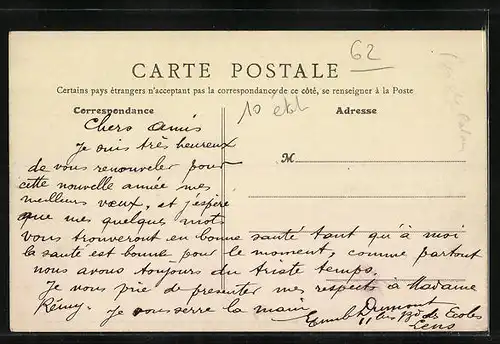 62
CARTE POSTALE
Certains pays étrangers n'acceptant pas la correspondance de ce côté, se renseigner à la Poste
Correspondance
10 étbl
Adresse
M
Chers Amis
Je suis très heureux
de vous renouveler pour
cette nouvelle année mes
meilleurs vœux, et j'espère
que mes quelques mots
vous trouveront en bonne santé tant qu'à moi
la santé est bonne pour le moment, comme partout
nous avons toujours du triste temps.
Je vous prie de presenter mes respects à Madame
Rémy. Je vous serre la main
Dumont
11 des Ecoles
Lens